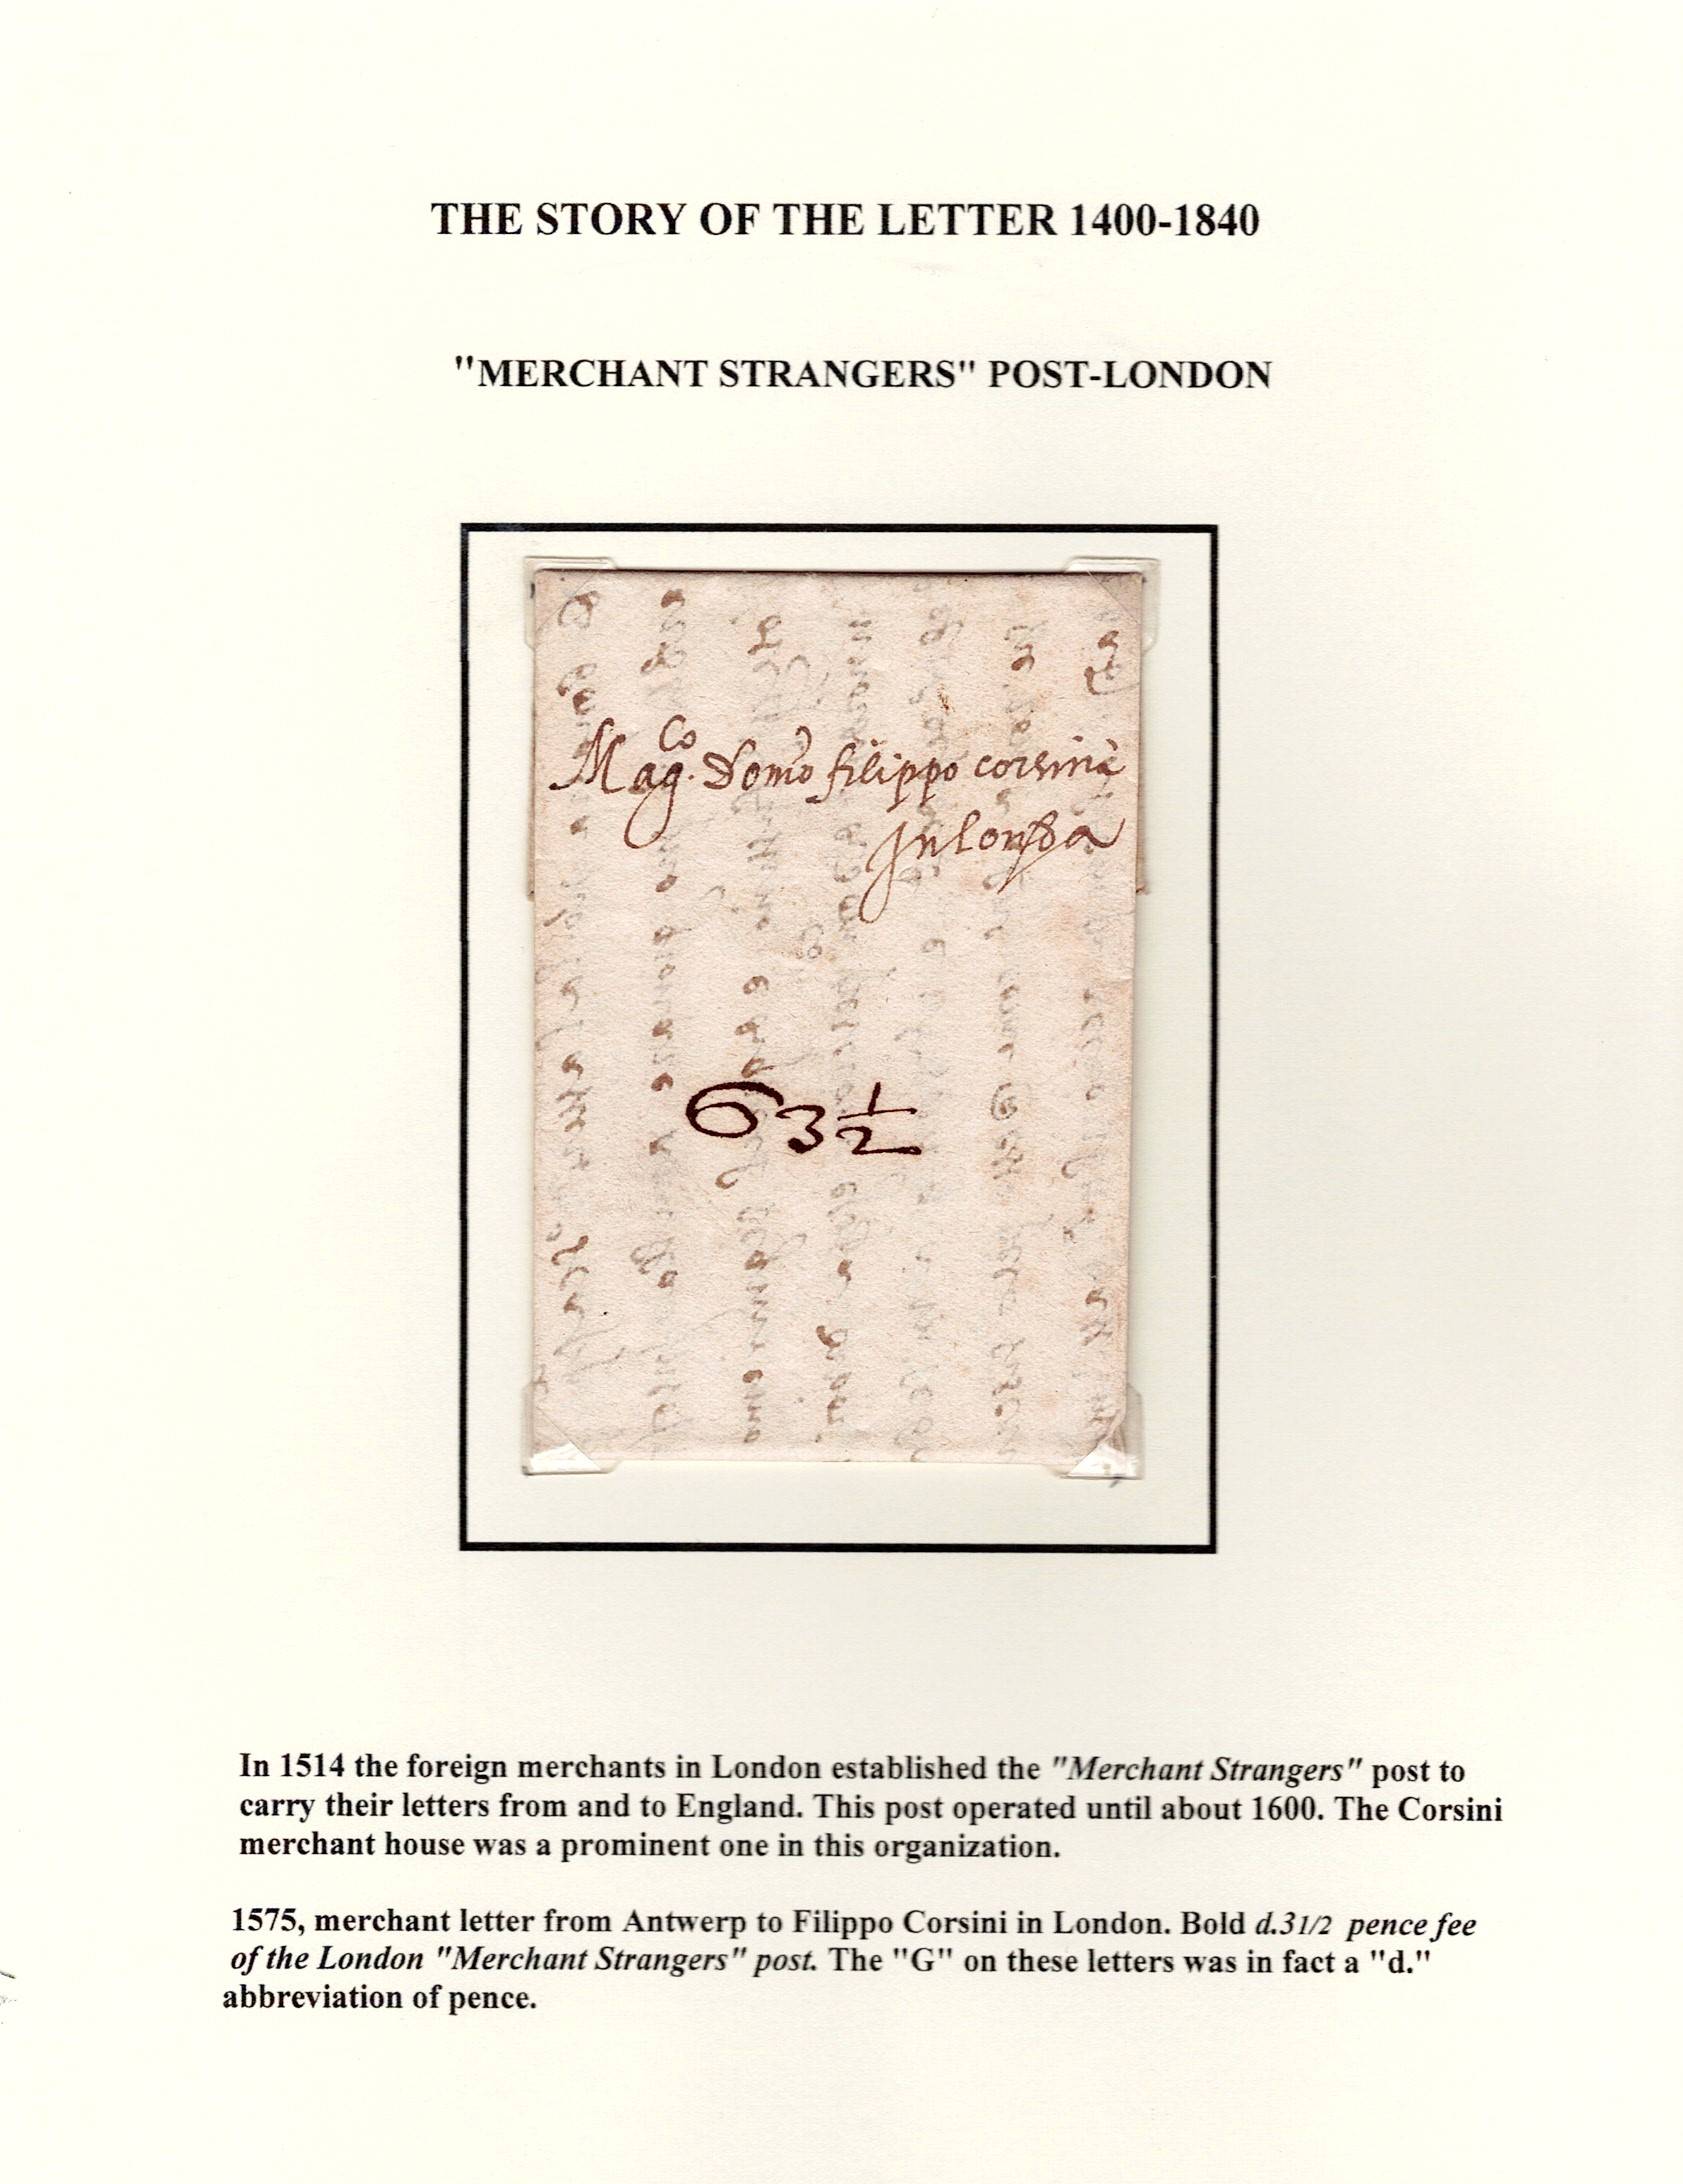 THE STORY OF THE LETTER 1400-1840
"MERCHANT STRANGERS" POST-LONDON
Co
Mag. Domo filippo corsini
In londra
6 3 1/2
In 1514 the foreign merchants in London established the "Merchant Strangers" post to
carry their letters from and to England. This post operated until about 1600. The Corsini
merchant house was a prominent one in this organization.
1575, merchant letter from Antwerp to Filippo Corsini in London. Bold d.31/2 pence fee
of the London "Merchant Strangers" post. The "G" on these letters was in fact a "d."
abbreviation of pence.